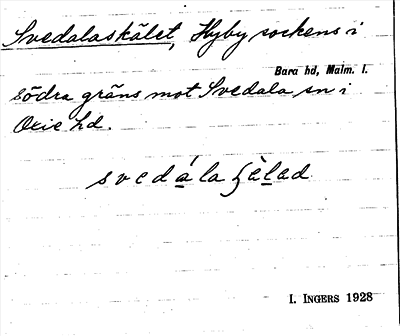 Svedalaskälet, Hyby sockens i
Bara hd, Malm. l.
södra gräns mot Svedala sn i
Oxie hd.
svedala
I. INGERS 1928